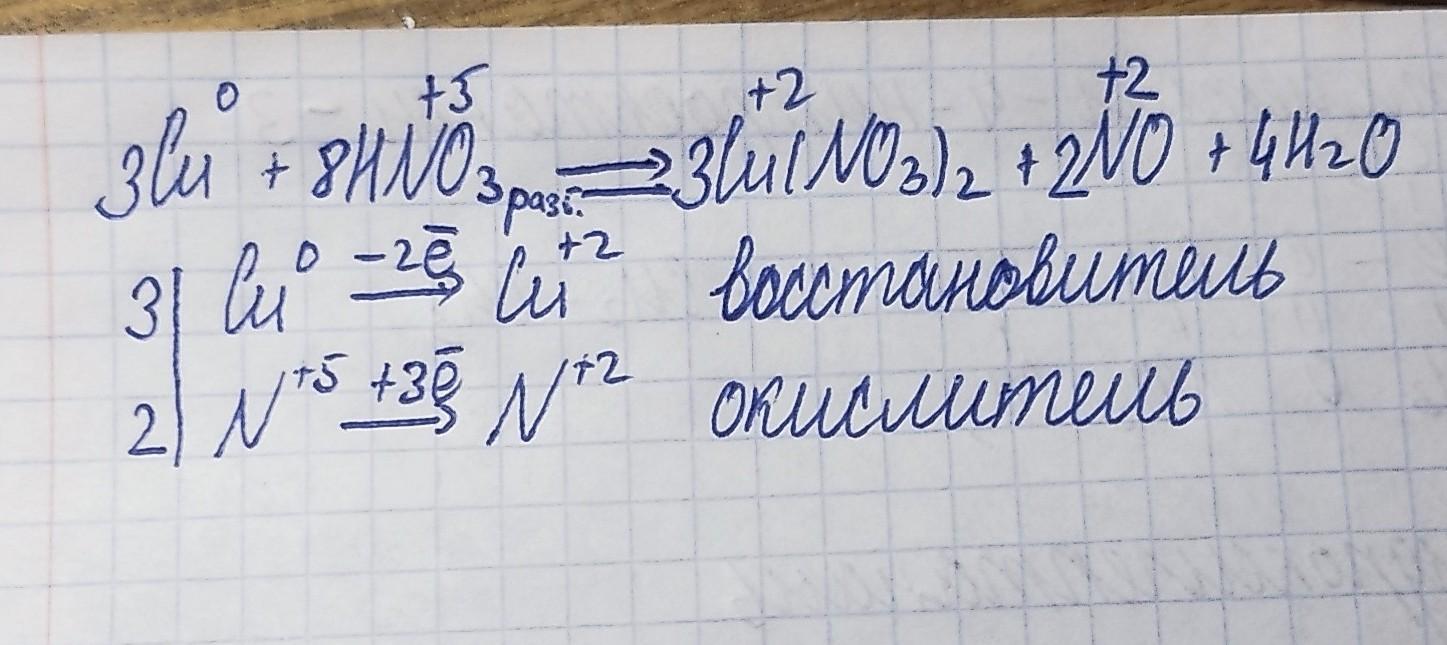 3Cu⁰ + 8HN⁺⁵O₃ разб. ⇒ 3Cu⁺²(NO₃)₂ + 2N⁺²O + 4H₂O
3| Cu⁰ −2ē → Cu⁺² восстановитель
2| N⁺⁵ +3ē → N⁺² окислитель